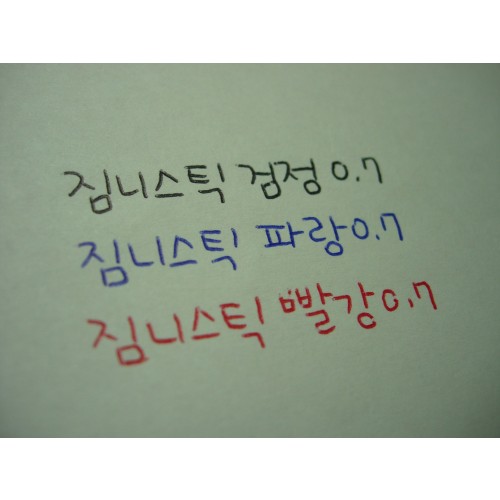 짐니스틱 검정 0.7
짐니스틱 파랑 0.7
짐니스틱 빨강 0.7